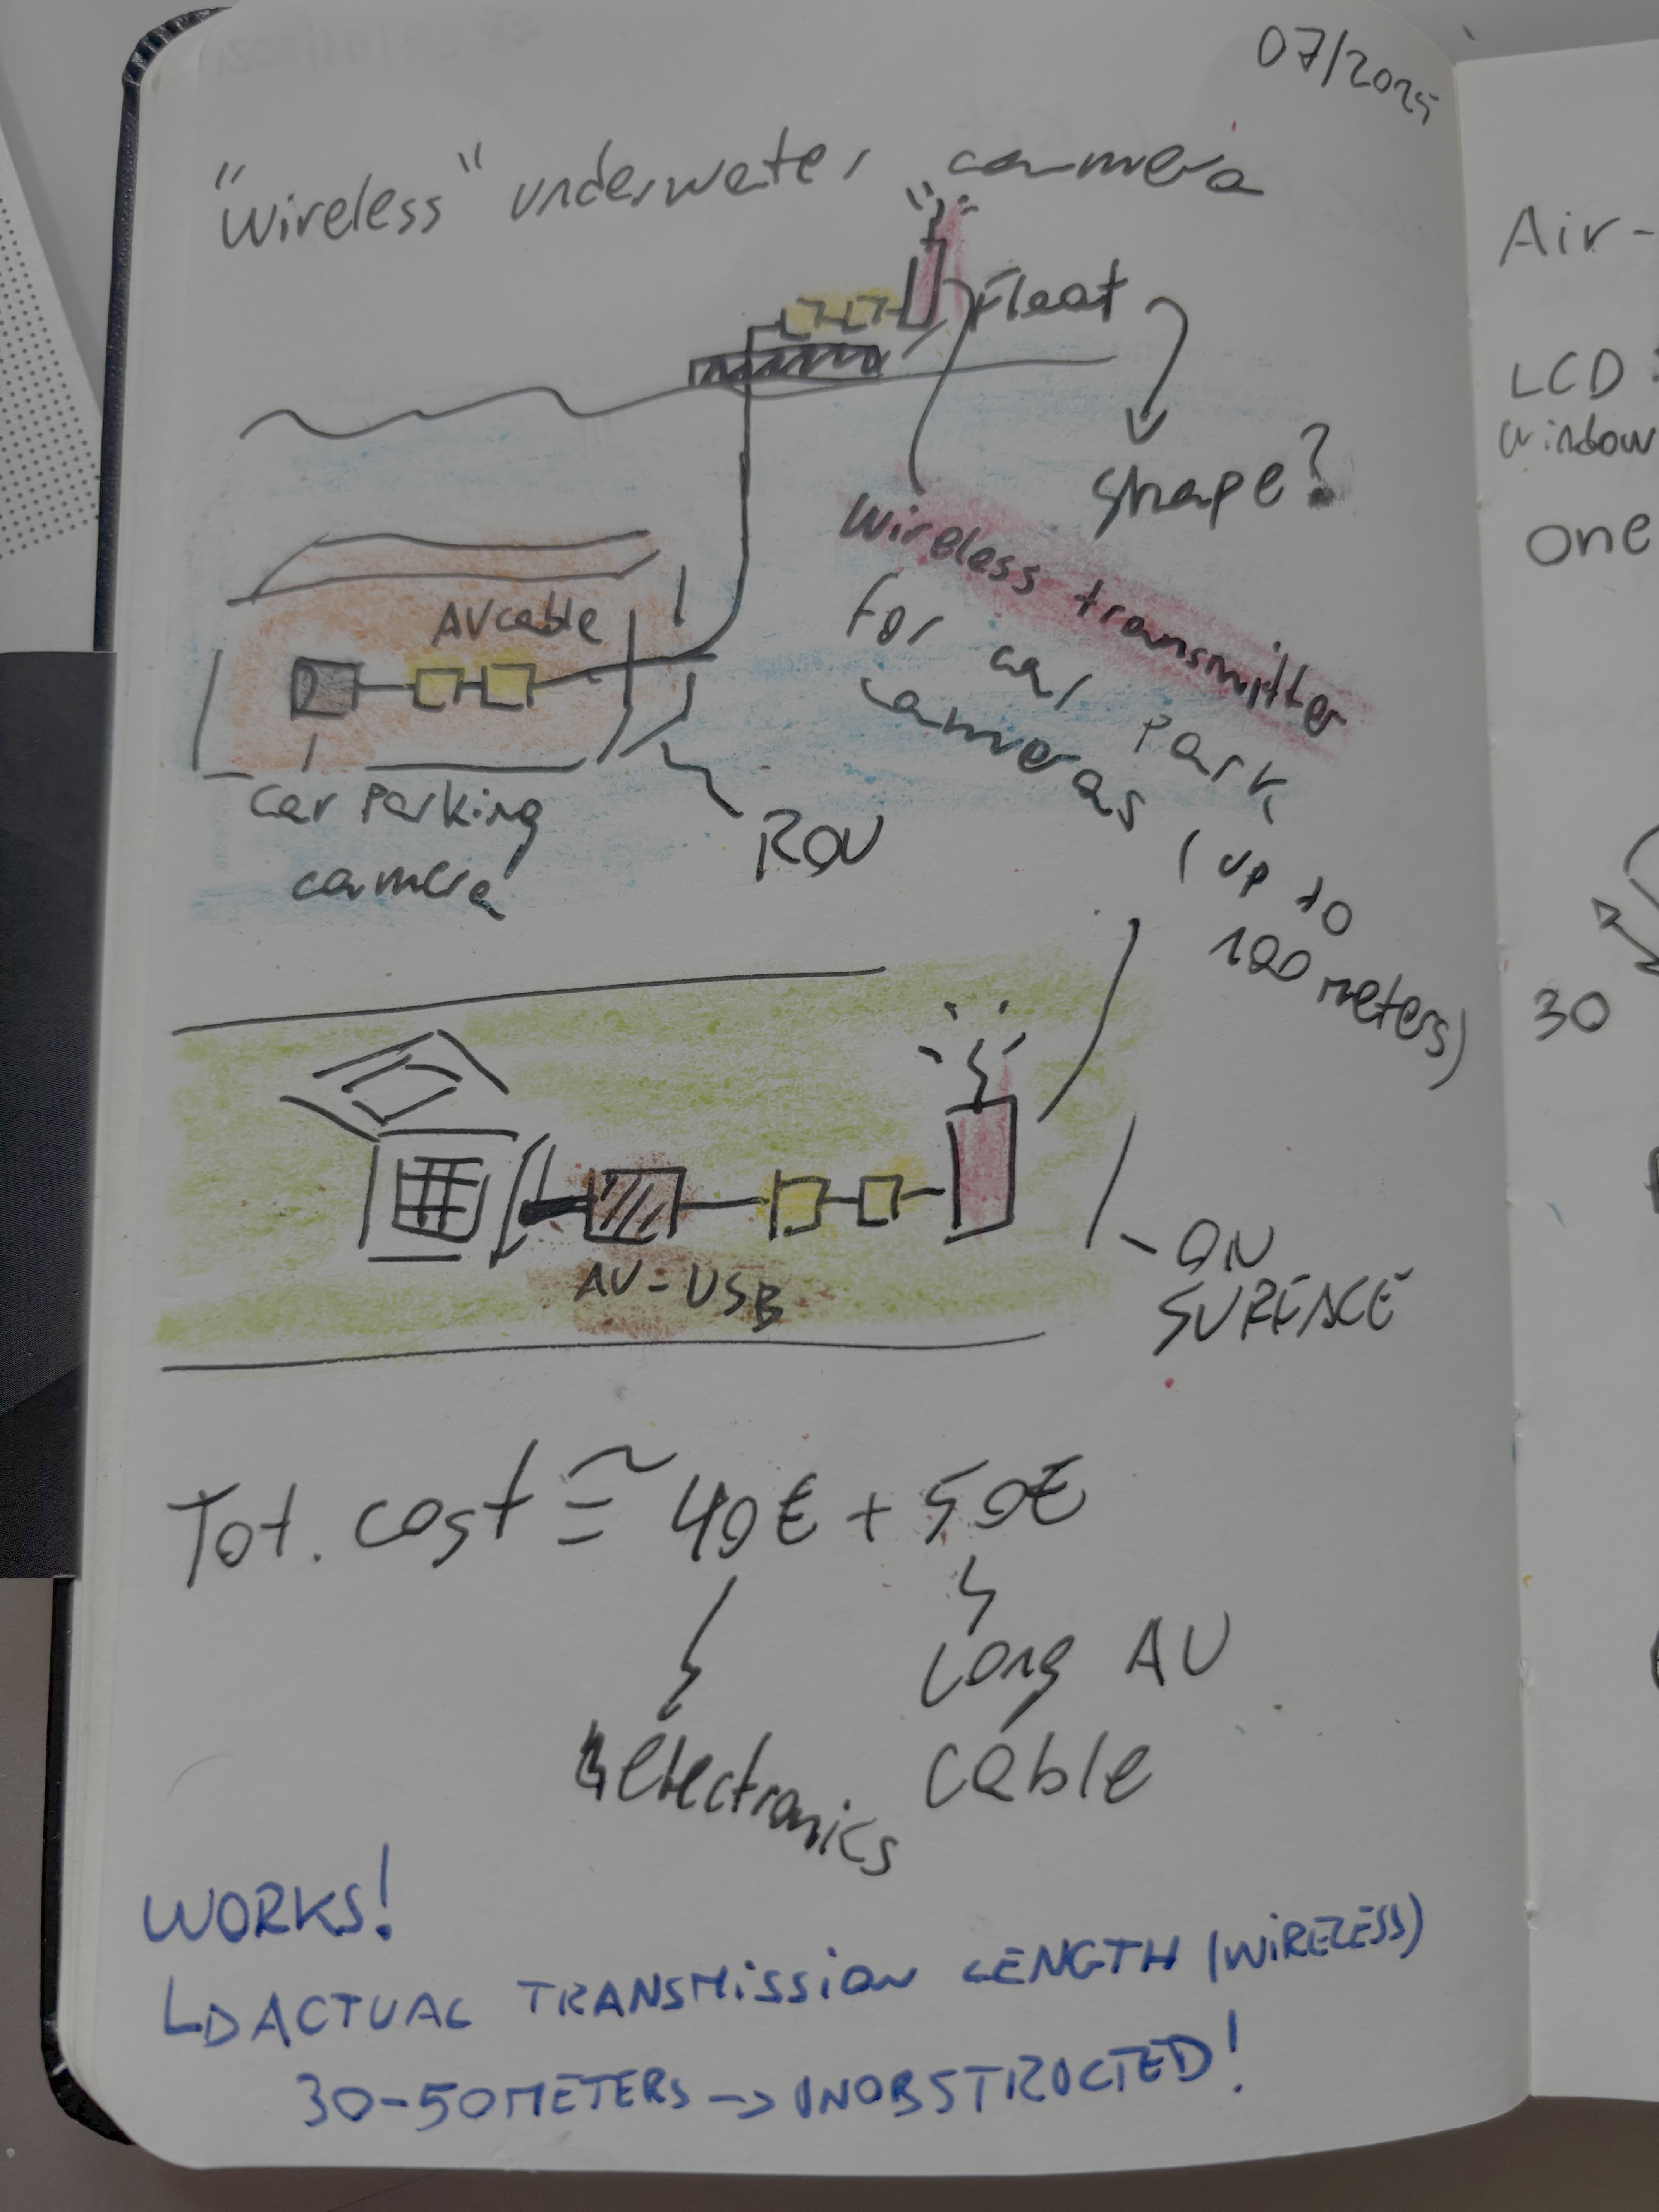 07/2025
"Wireless" underwater camera
Float
shape?
Wireless transmitter
for car park
cameras (up to
100 meters)
AV cable
car parking
camera
ROV
AV-USB
ON
SURFACE
Tot. cost ≅ 40€ + 50€
Long AV
cable
electronics
WORKS!
ACTUAL TRANSMISSION LENGTH (WIRELESS)
30-50 METERS -> UNOBSTRUCTED!
Air-
LCD
window
one
30